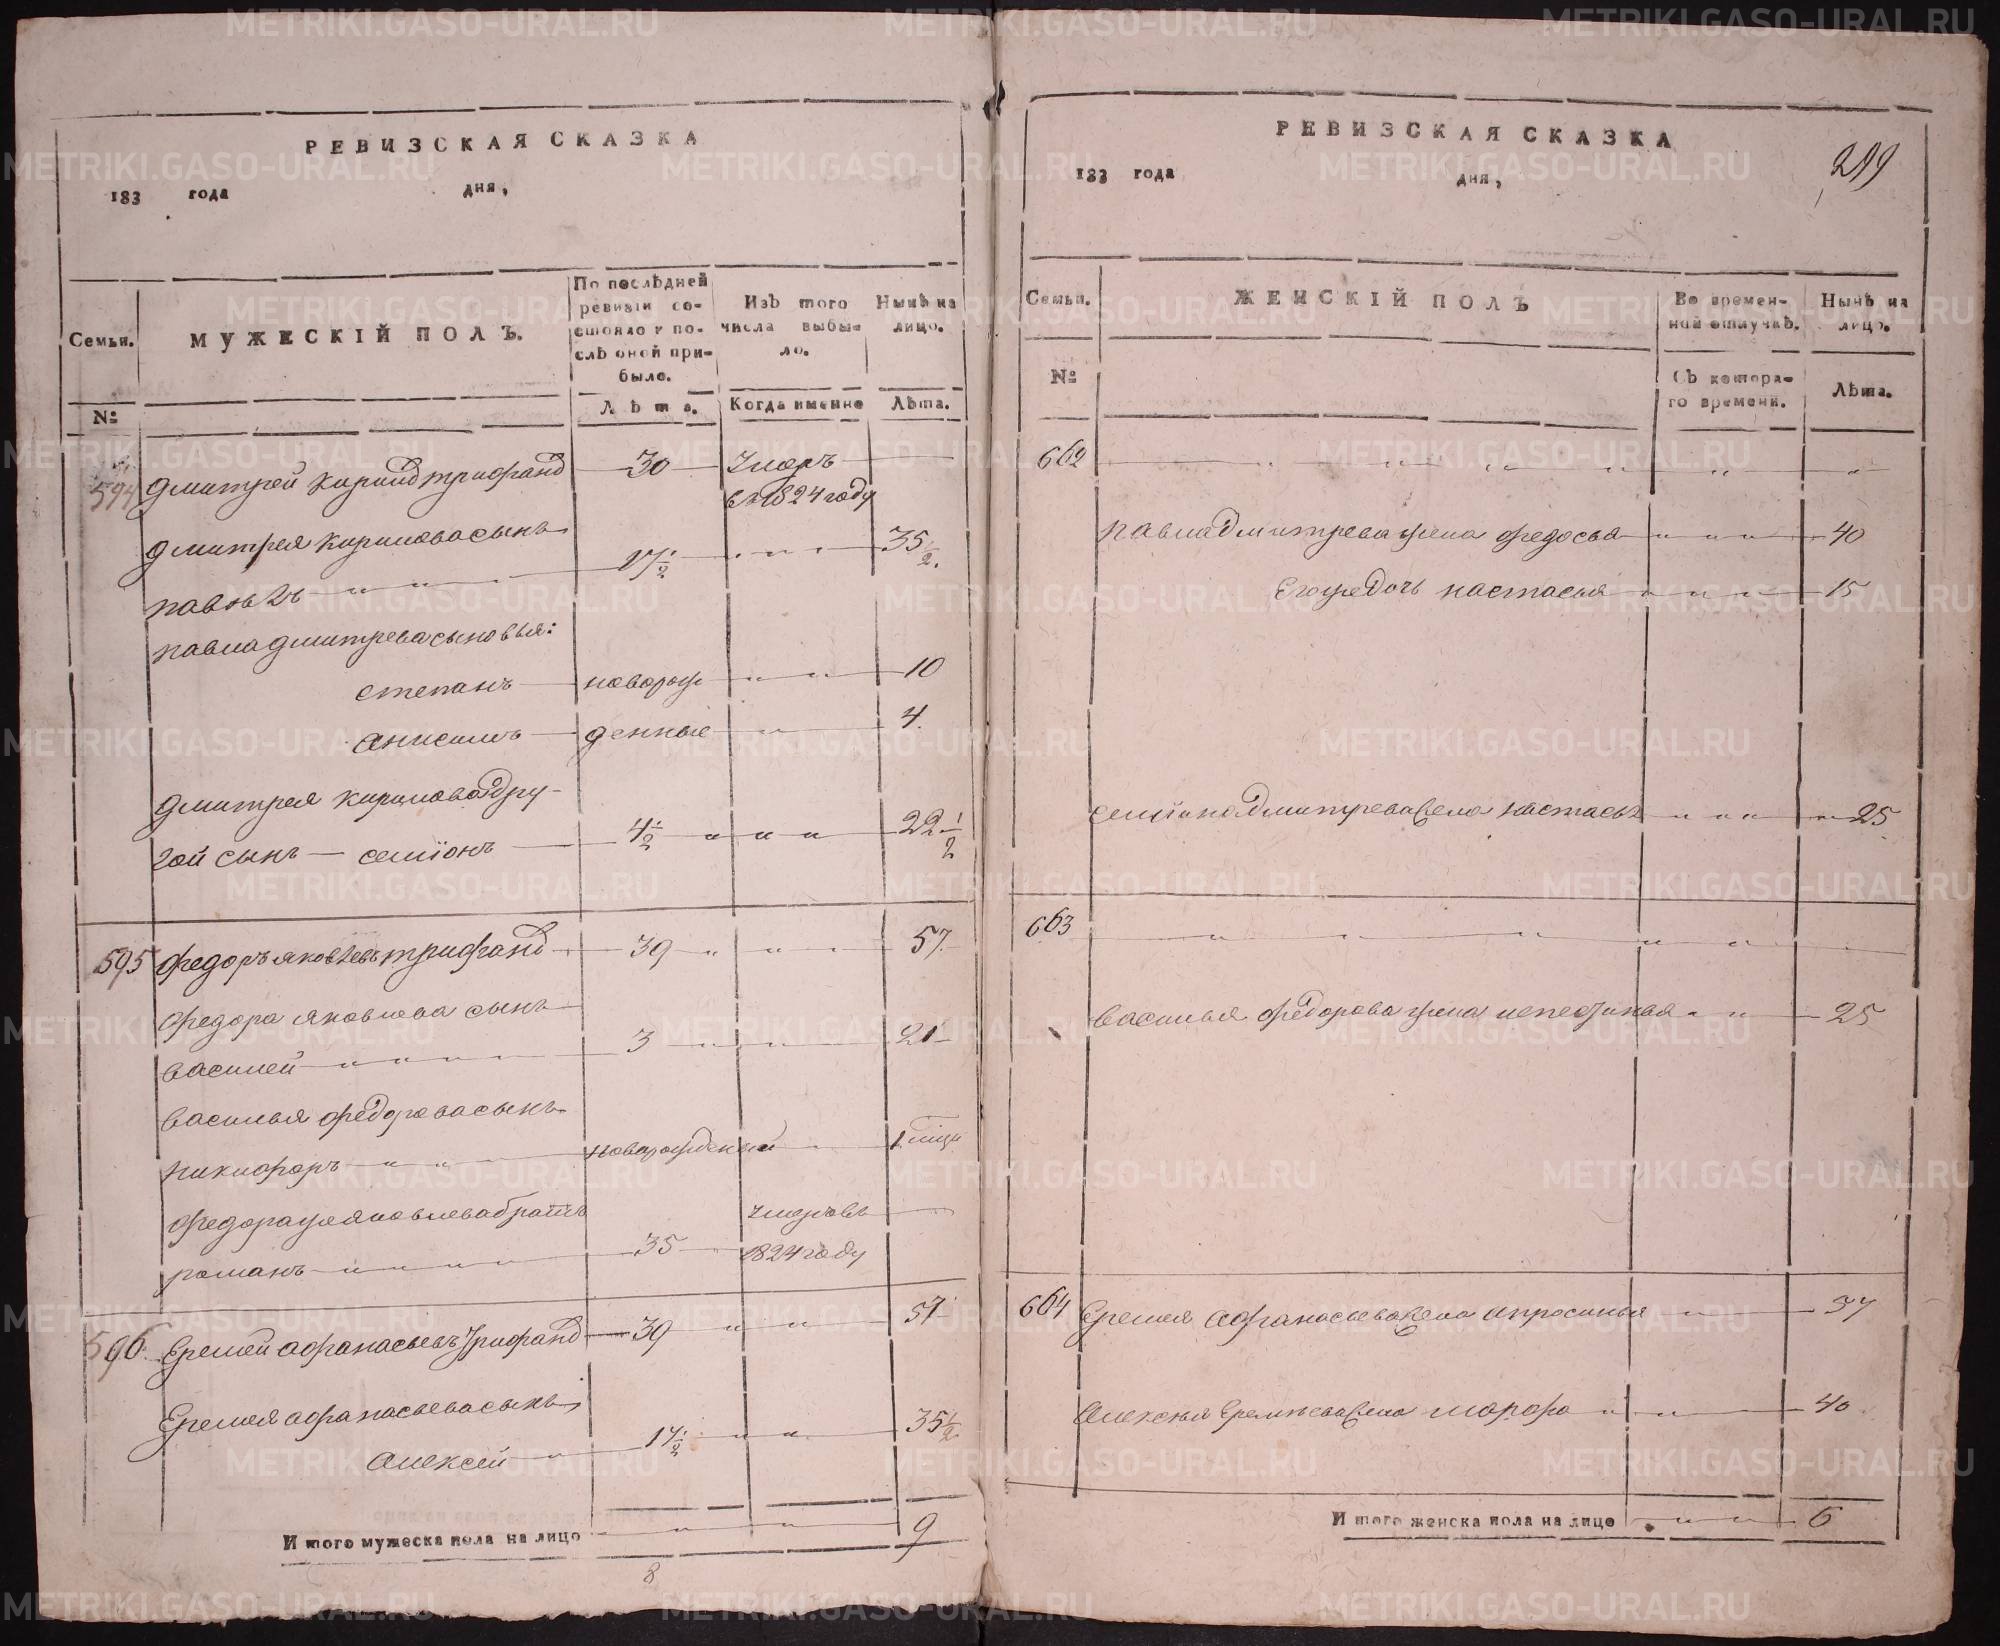 РЕВИЗСКАЯ СКАЗКА
183 года дня,
Семьи.
МУЖЕСКІЙ ПОЛЪ.
По послѣдней ревизіи состояло и послѣ оной прибыло.
Изъ того числа выбыло.
Нынѣ на лицо.
№
Лѣта. Когда именно Лѣта.
594 Дмитрей Кирил трифан 30 Умеръ
въ 1824 году
Дмитрея Кирилова сынъ
павелъ 17 1/2 35 1/2.
павла дмитрева сыновья:
степанъ новорож 10
Анисимъ денные 4.
Дмитрея Кирилова дру-
гой сынъ — семіонъ 4 1/2 22 1/2
595 Федоръ яковлевъ трифан 39 57.
Федора яковлева сынъ
василей 3 21
Василья федорова сынъ
никифоръ новорожденый 1
Федора же яковлева братъ умеръ въ
романъ 35 1824 году
596. Еремей афанасьевъ трифан 39 57
Еремея афанасьева сынъ
Алексей 17 1/2 35 1/2
Итого мужеска пола на лицо 9
8
РЕВИЗСКАЯ СКАЗКА
183 года дня,
299
Семьи.
ЖЕНСКІЙ ПОЛЪ
Во временной отлучкѣ.
Нынѣ на лицо.
№
Съ котораго времени.
Лѣта.
662
павла Дмитрева жена федосья 40
Его же дочь настасья 15
семиона Дмитрева жена настасья 25
663
василья федорова жена 25
664 Еремея Афанасьева жена апросинья 57
Алексея Еремеева жена 40
Итого женска пола на лицо 6
METRIKI.GASO-URAL.RU